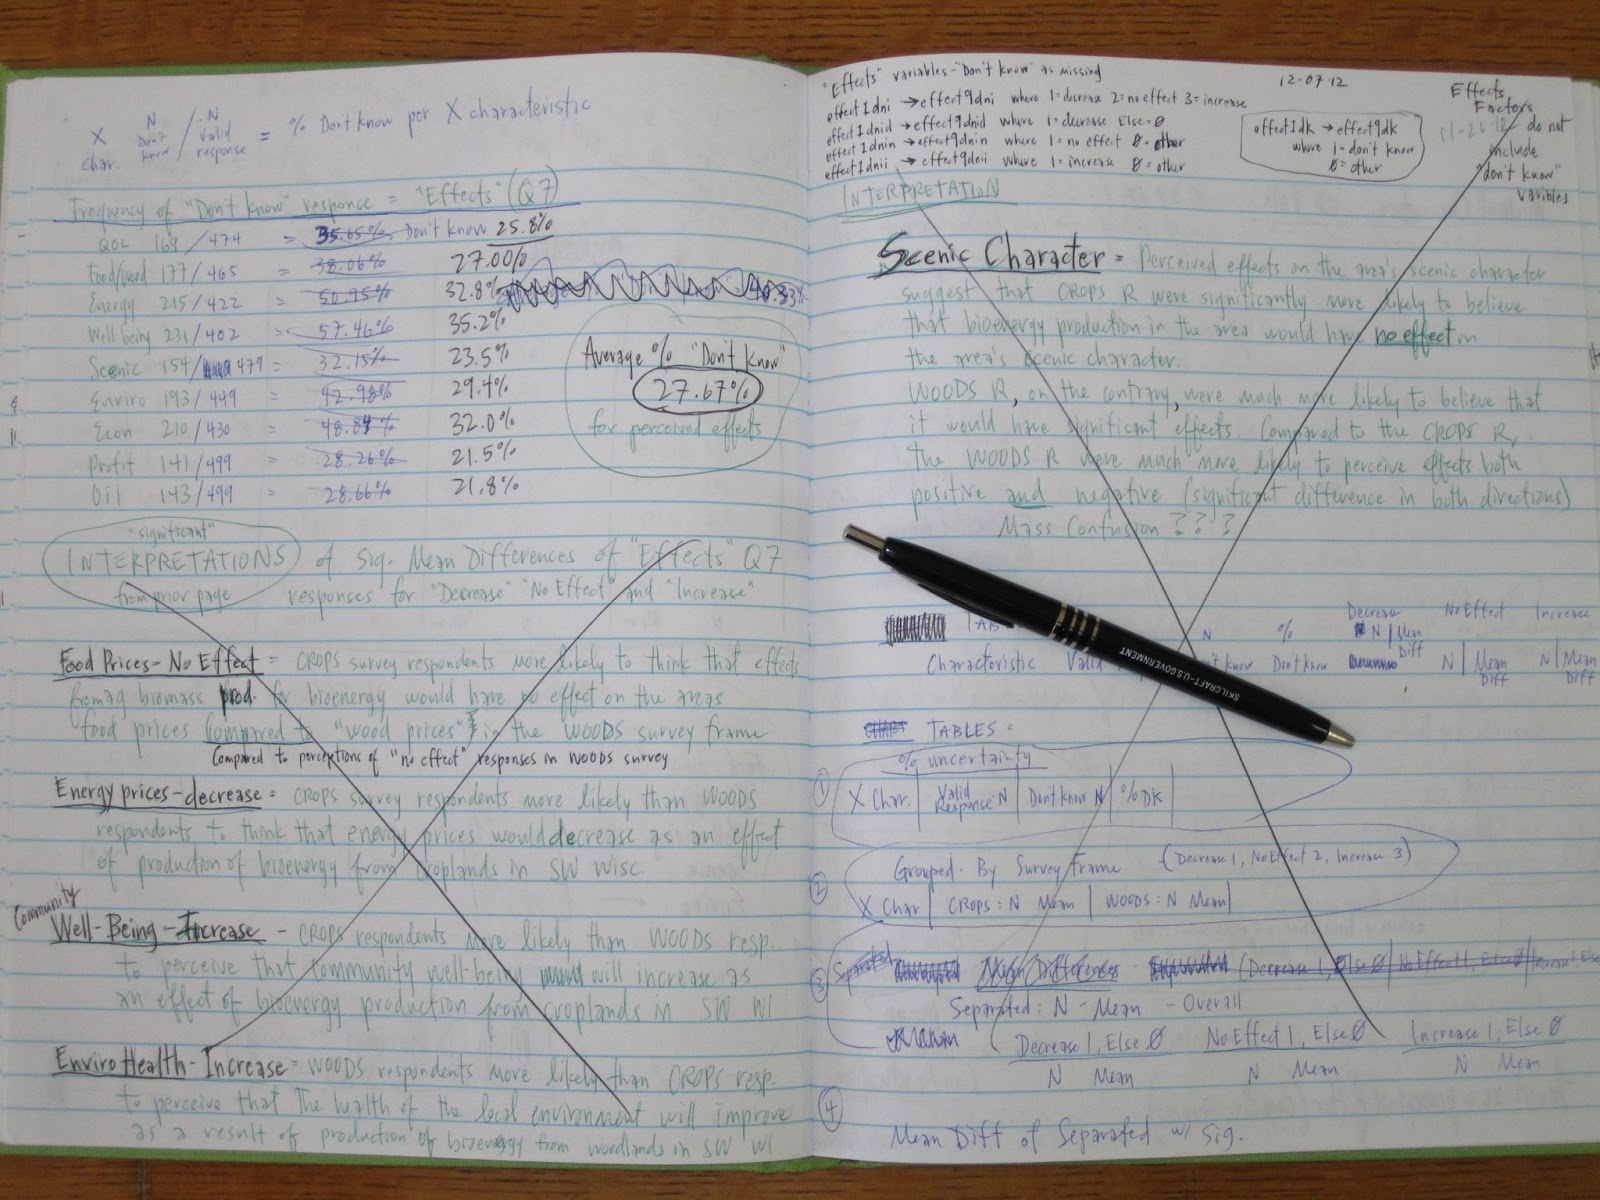 X char. N Don't know / N valid response = % Don't know per X characteristic
Frequency of "Don't know" response = "Effects" (Q7)
QOL 169/474 = 35.65% Don't know 25.8%
Food/wood 177/465 = 38.06% 27.00%
Energy 215/422 = 50.95% 32.8%
Well being 231/402 = 57.46% 35.2%
Scenic 154/479 = 32.15% 23.5%
Enviro 193/449 = 42.98% 29.4%
Econ 210/430 = 48.84% 32.0%
Profit 141/499 = 28.26% 21.5%
Oil 143/499 = 28.66% 21.8%
Average % "Don't know"
27.67%
for perceived effects
"significant"
INTERPRETATIONS of Sig. Mean Differences of "Effects" Q7
from prior page responses for "Decrease" "No Effect" and "Increase"
Food Prices - No Effect = CROPS survey respondents more likely to think that effects
from ag biomass prod. for bioenergy would have no effect on the areas
food prices compared to "wood prices" in the WOODS survey frame
Compared to perceptions of "no effect" responses in WOODS survey
Energy prices - decrease = CROPS survey respondents more likely than WOODS
respondents to think that energy prices would decrease as an effect
of production of bioenergy from croplands in SW Wisc.
Community
Well-Being - Increase - CROPS respondents more likely than WOODS resp.
to perceive that community well-being will increase as
an effect of bioenergy production from croplands in SW WI
Enviro Health - Increase = WOODS respondents more likely than CROPS resp.
to perceive that the health of the local environment will improve
as a result of production of bioenergy from woodlands in SW WI
"Effects" variables - "Don't know" as missing
12-07-12
effect1dni → effect9dni where 1=decrease 2=no effect 3=increase
effect1dnid → effect9dnid where 1=decrease Else=0
effect1dnin → effect9dnin where 1=no effect 0=other
effect1dnii → effect9dnii where 1=increase 0=other
effect1dk → effect9dk
where 1=don't know
0=other
Effects
Factors
11-26-12 do not
include
"don't know"
varibles
INTERPRETATION
Scenic Character = Perceived effects on the area's scenic character
suggest that CROPS R were significantly more likely to believe
that bioenergy production in the area would have no effect on
the area's scenic character.
WOODS R, on the contrary, were much more likely to believe that
it would have significant effects. Compared to the CROPS R,
the WOODS R were much more likely to perceive effects both
positive and negative (significant difference in both directions)
Mass Confusion ? ? ?
TAB N % Decrease No Effect Increase
Characteristic Valid Don't know Don't know N | Mean Diff N | Mean Diff N | Mean Diff
SKILCRAFT-U.S.GOVERNMENT
TABLES =
% uncertainty
① X Char. | Valid Response N | Don't know N | % DK |
Grouped - By Survey Frame (Decrease 1, No Effect 2, Increase 3)
② X Char | CROPS: N Mean | WOODS: N Mean |
③ Separated Mean Differences (Decrease 1, Else 0 | No Effect 1, Else 0 | Increase 1, Else
Separated: N - Mean - Overall
Decrease 1, Else 0 No Effect 1, Else 0 Increase 1, Else 0
N Mean N Mean N Mean
④
Mean Diff of Separated w/ Sig.